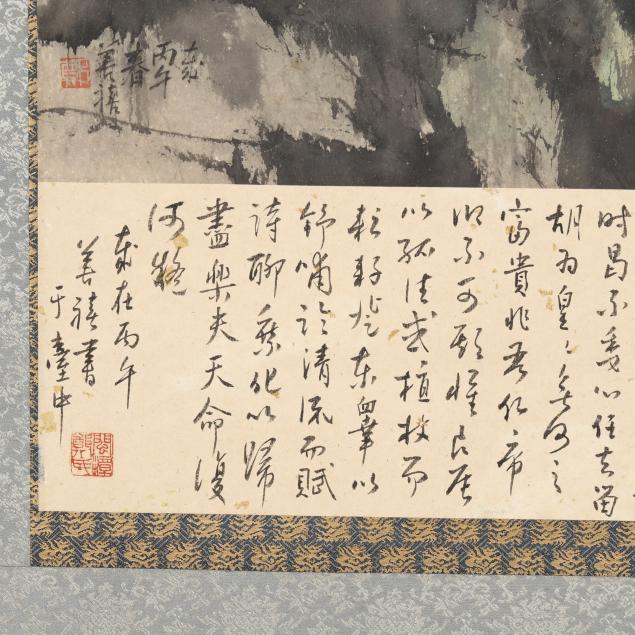 歲
丙午
春
善禧
時曷不委心任去留
胡为皇々欲何之
富貴非吾願帝
鄉不可期懷良辰
以孤往或植杖而
耘耔登東皋以
舒嘯臨清流而賦
詩聊乘化以歸
盡樂夫天命復
何疑
歲在丙午
善禧書
于臺中
閩漳
鄭氏